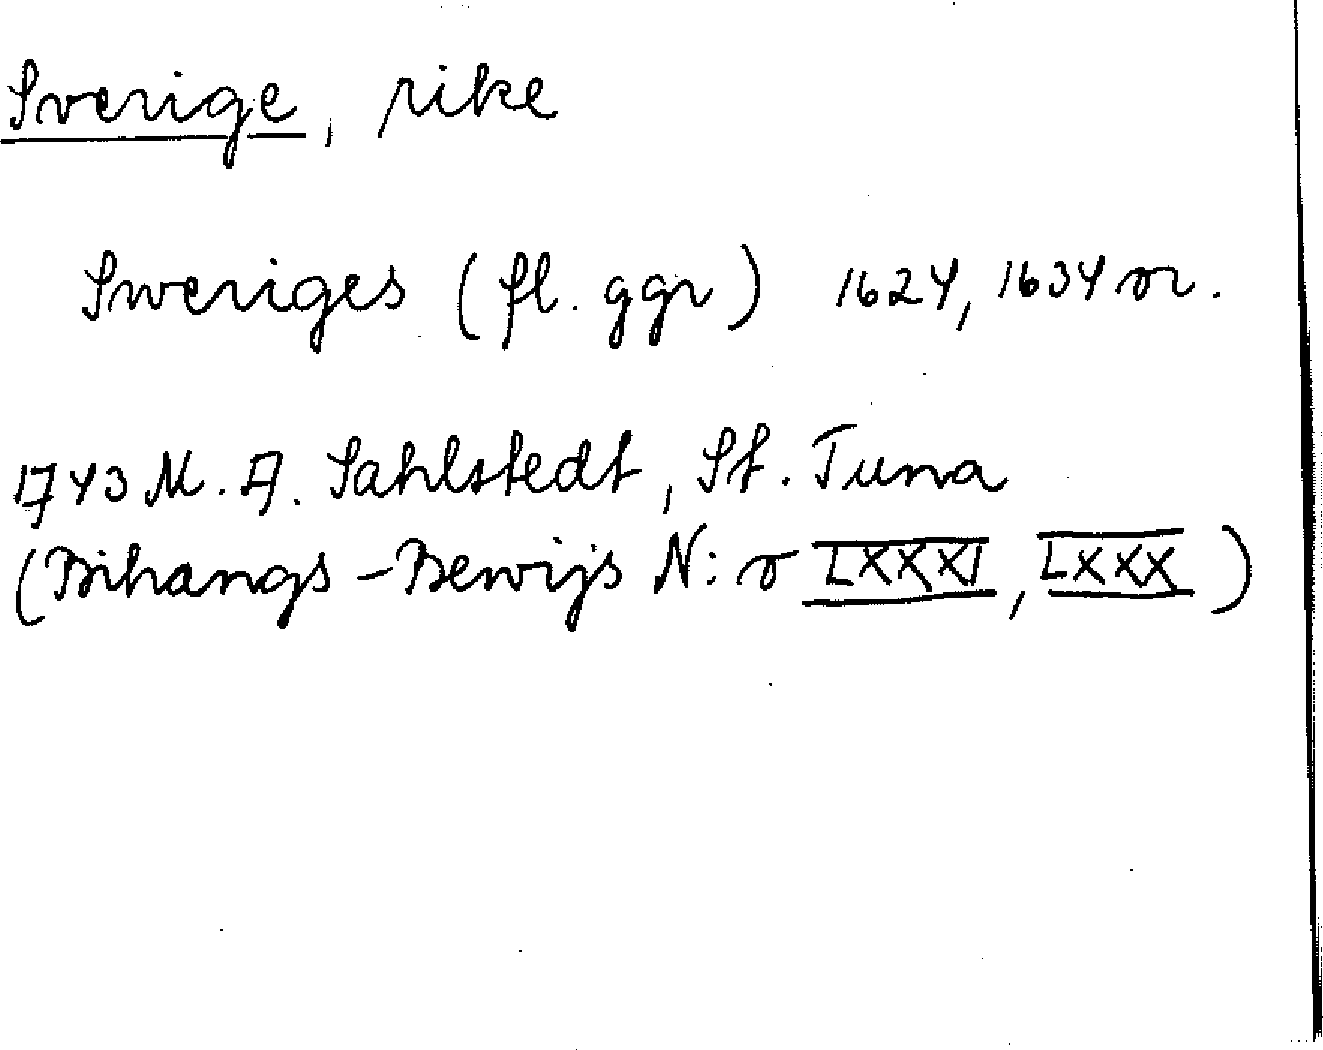 Sverige, rike
Sweriges (fl. ggr) 1624, 1634 or.
1743 M. A. Sahlstedt, St. Tuna
(Bihangs-Bewijs N:o LXXXI, LXXX)